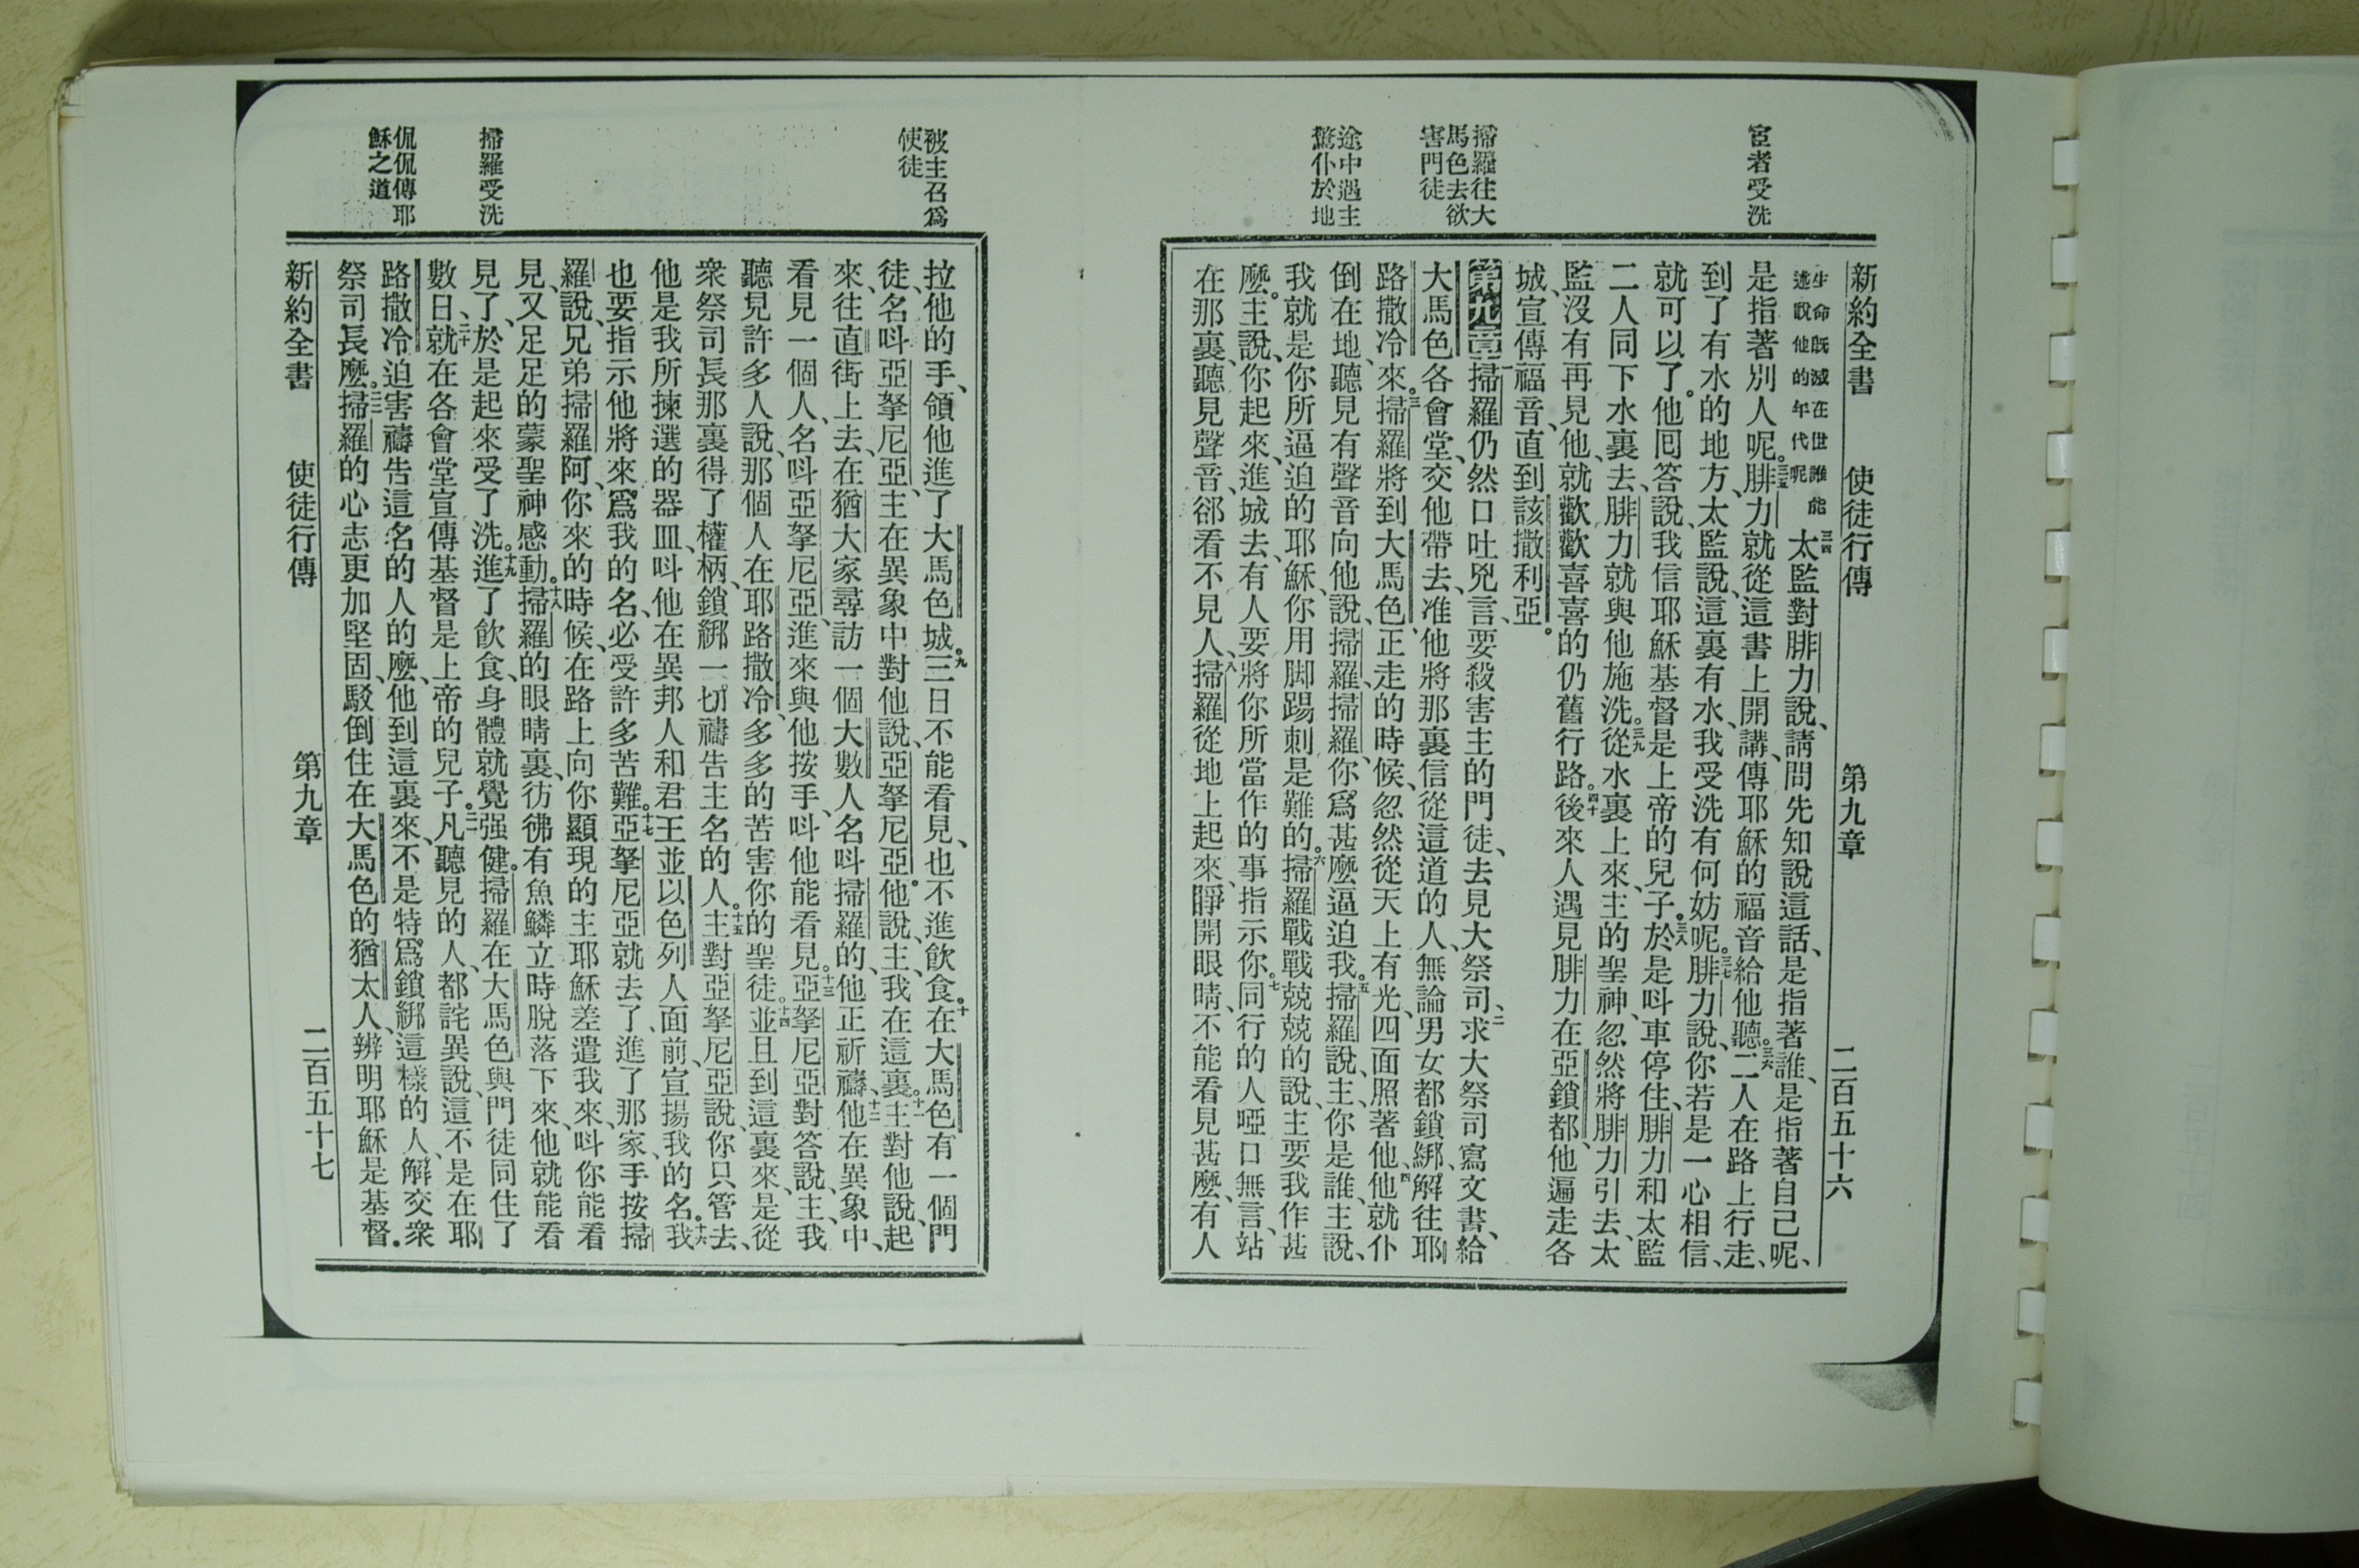 宦者受洗
掃羅往大
馬色去欲
害門徒
途中遇主
驚仆於地
新約全書 使徒行傳 第九章 二百五十六
生命既滅在世誰能
述說他的年代呢
三四太監對腓力說、請問先知說這話、是指著誰、是指著自己呢、
是指著別人呢。三五腓力就從這書上開講、傳耶穌的福音給他聽。三六二人在路上行走、
到了有水的地方、太監說、這裏有水、我受洗有何妨呢。三七腓力說、你若是一心相信、
就可以了。他囘答說、我信耶穌基督是上帝的兒子。三八於是呌車停住、腓力和太監
二人同下水裏去、腓力就與他施洗。三九從水裏上來、主的聖神、忽然將腓力引去、太
監沒有再見他、就歡歡喜喜的仍舊行路。四十後來人遇見腓力在亞鎖都、他遍走各
城、宣傳福音、直到該撒利亞。
第九章一掃羅仍然口吐兇言、要殺害主的門徒、去見大祭司、二求大祭司寫文書、給
大馬色各會堂、交他帶去、准他將那裏信從這道的人、無論男女都鎖綁、解往耶
路撒冷來。三掃羅將到大馬色、正走的時候、忽然從天上有光、四面照著他、四他就仆
倒在地、聽見有聲音向他說、掃羅、掃羅、你爲甚麼逼迫我。五掃羅說、主、你是誰、主說、
我就是你所逼迫的耶穌、你用脚踢刺是難的。六掃羅戰戰兢兢的說、主要我作甚
麼。主說、你起來、進城去、有人要將你所當作的事指示你。七同行的人啞口無言、站
在那裏、聽見聲音、郤看不見人、八掃羅從地上起來、睜開眼睛、不能看見甚麼、有人
被主召爲
使徒
掃羅受洗
侃侃傳耶
穌之道
拉他的手、領他進了大馬色城。九三日不能看見、也不進飲食。十在大馬色有一個門
徒、名呌亞拏尼亞、主在異象中對他說、亞拏尼亞。他說、主、我在這裏。十一主對他說、起
來、往直街上去、在猶大家尋訪一個大數人名呌掃羅的、他正祈禱、十二他在異象中、
看見一個人、名呌亞拏尼亞、進來與他按手、呌他能看見。十三亞拏尼亞對答說、主、我
聽見許多人說、那個人在耶路撒冷、多多的苦害你的聖徒。十四並且到這裏來、是從
衆祭司長那裏得了權柄、鎖綁一切禱告主名的人。十五主對亞拏尼亞說、你只管去、
他是我所揀選的器皿、呌他在異邦人和君王並以色列人面前、宣揚我的名。十六我
也要指示他將來爲我的名、必受許多苦難。十七亞拏尼亞就去了、進了那家、手按掃
羅說、兄弟掃羅阿、你來的時候、在路上向你顯現的主耶穌差遣我來、呌你能看
見、又足足的蒙聖神感動。十八掃羅的眼睛裏、彷彿有魚鱗立時脫落下來、他就能看
見了、於是起來受了洗。十九進了飲食、身體就覺强健。掃羅在大馬色與門徒同住了
數日、二十就在各會堂宣傳基督是上帝的兒子。二一凡聽見的人、都詫異說、這不是在耶
路撒冷迫害禱告這名的人的麼、他到這裏來、不是特爲鎖綁這樣的人、解交衆
祭司長麼。二二掃羅的心志更加堅固、駁倒住在大馬色的猶太人、辨明耶穌是基督。
新約全書 使徒行傳 第九章 二百五十七